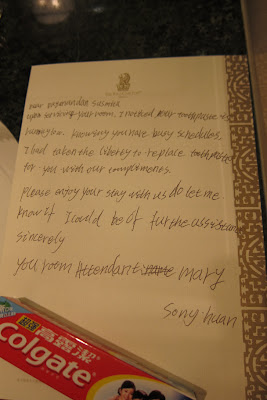 Dear
upon servicing your room, I noticed your toothpaste is
running low. Knowing you have busy schedules.
I had taken the liberty to replace toothpaste
for you with our compliments.
Please enjoy your stay with us do let me
know if I could be of further assistance
sincerely
your room Attendant mary
Song huan
超強 高露潔
Colgate